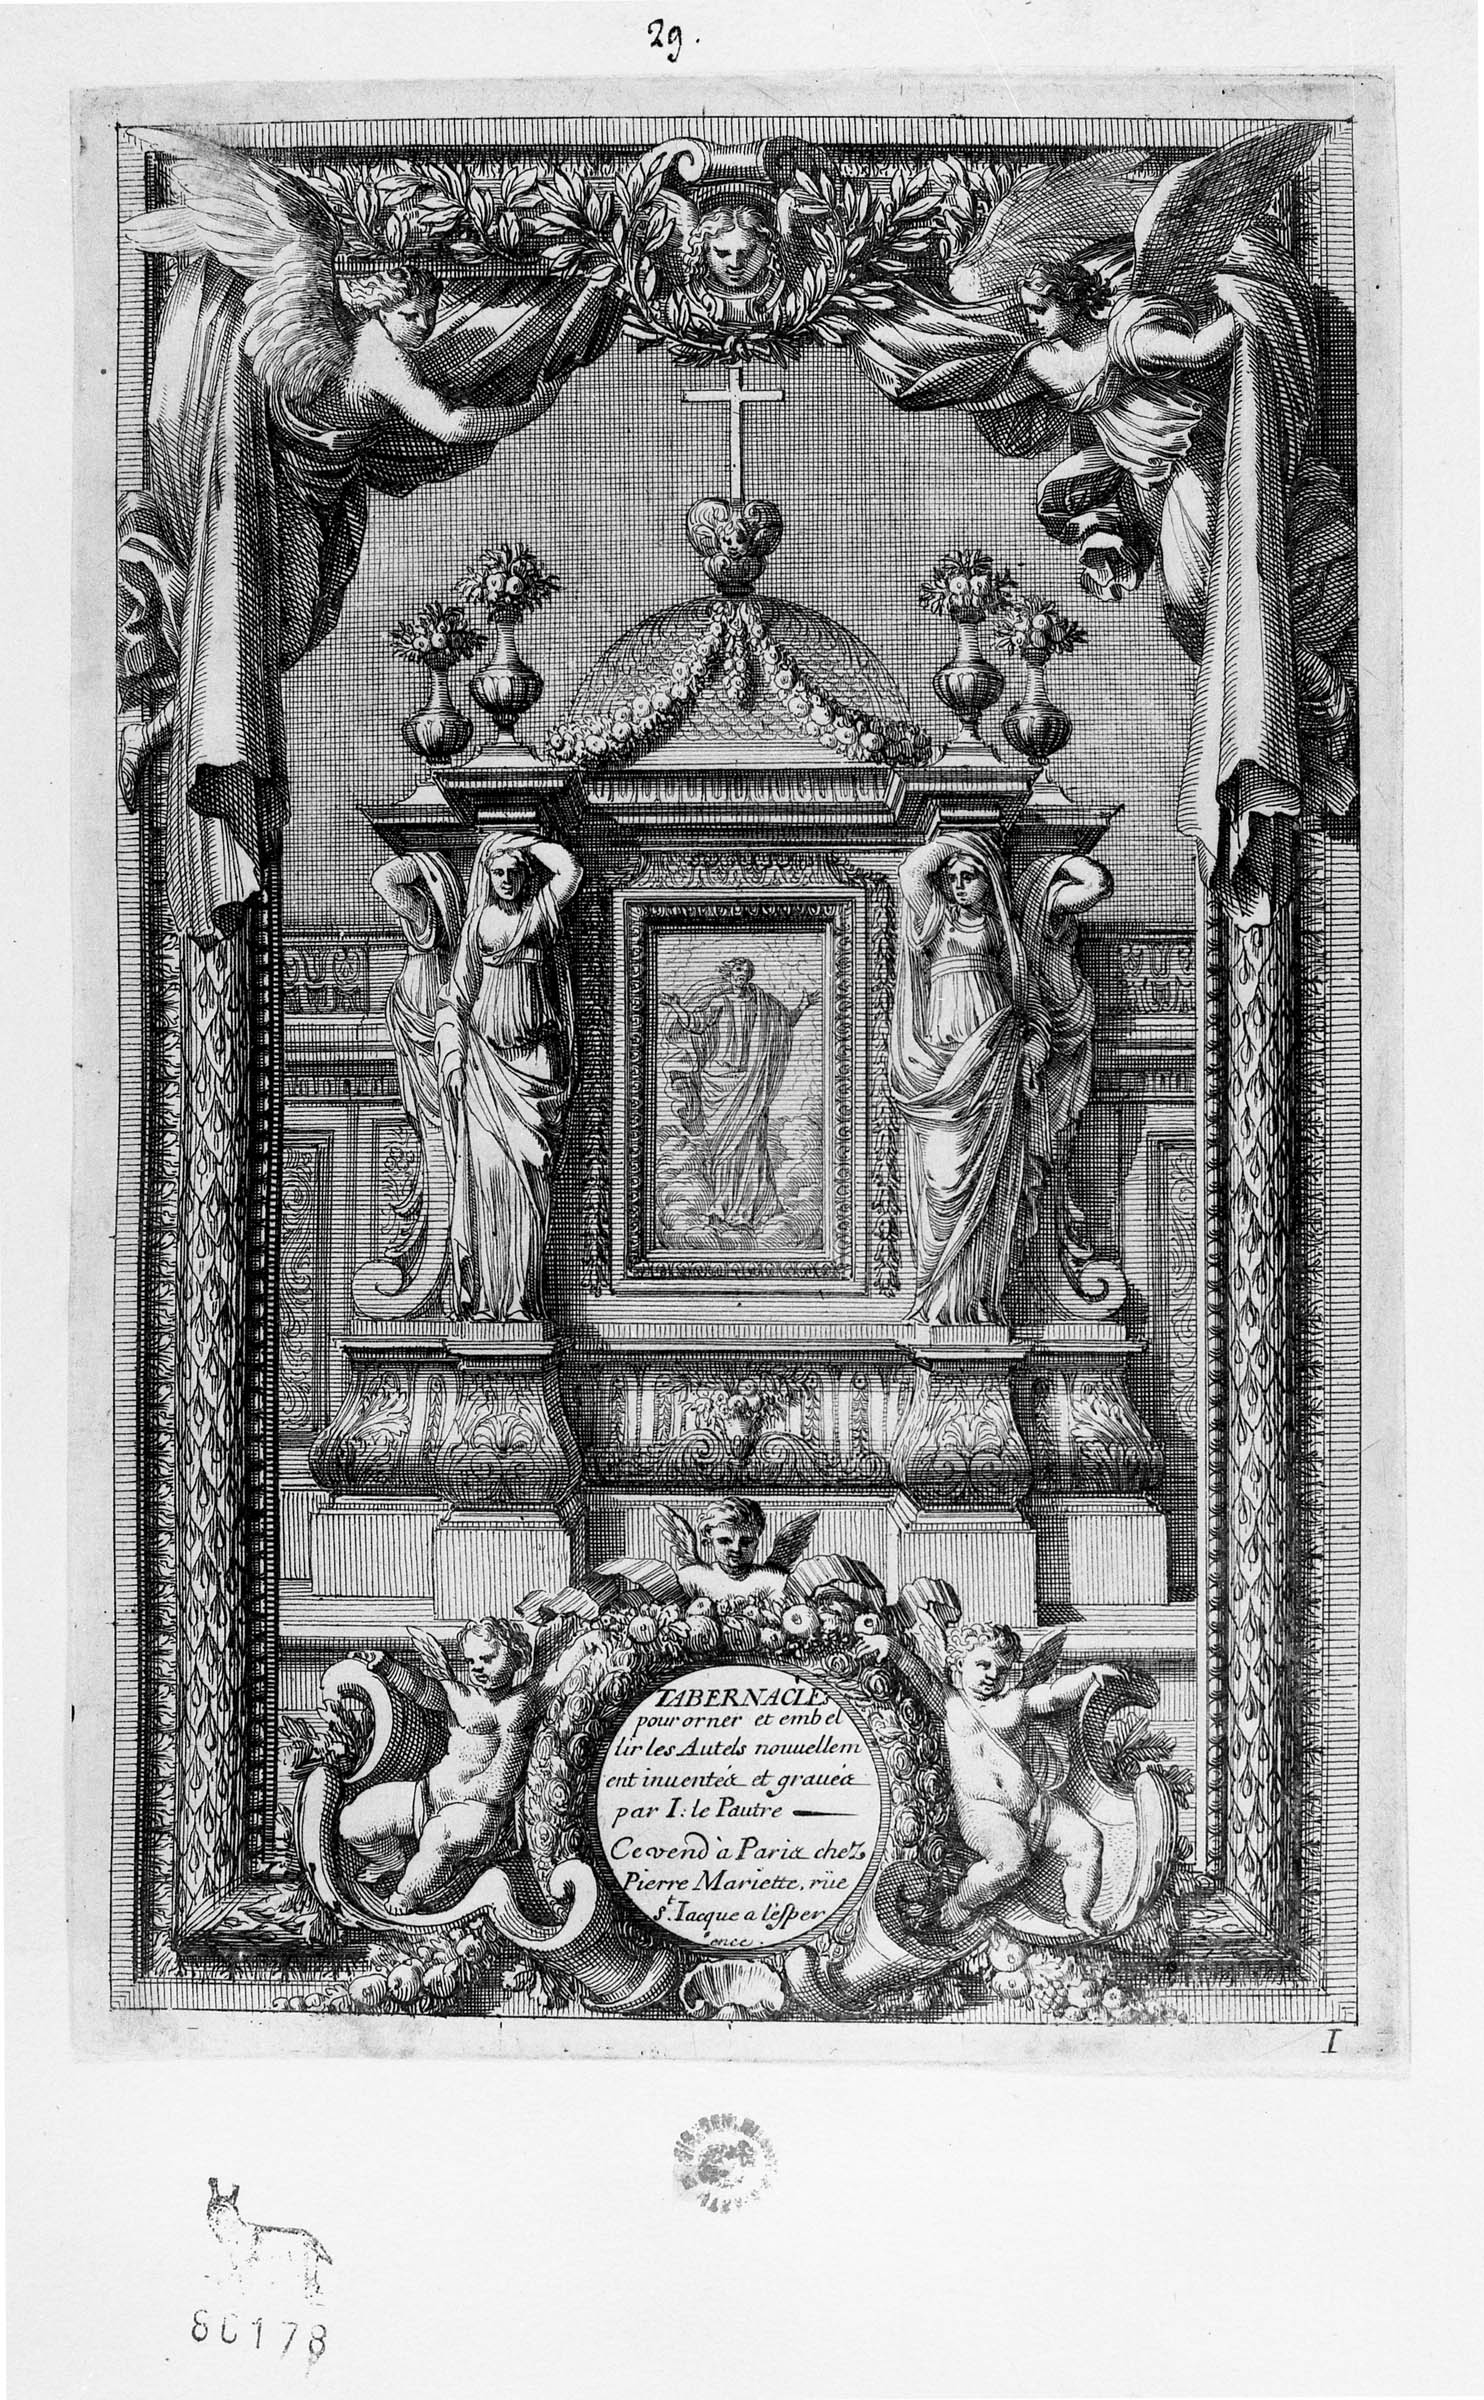 29.
TABERNACLES
pour orner et embel
lir les Autels nouuellem
ent inuentés et graués
par I: le Pautre
Ce vend à Paris chez
Pierre Mariette, rüe
St. Iacque a l'esper
ence.
I
80178